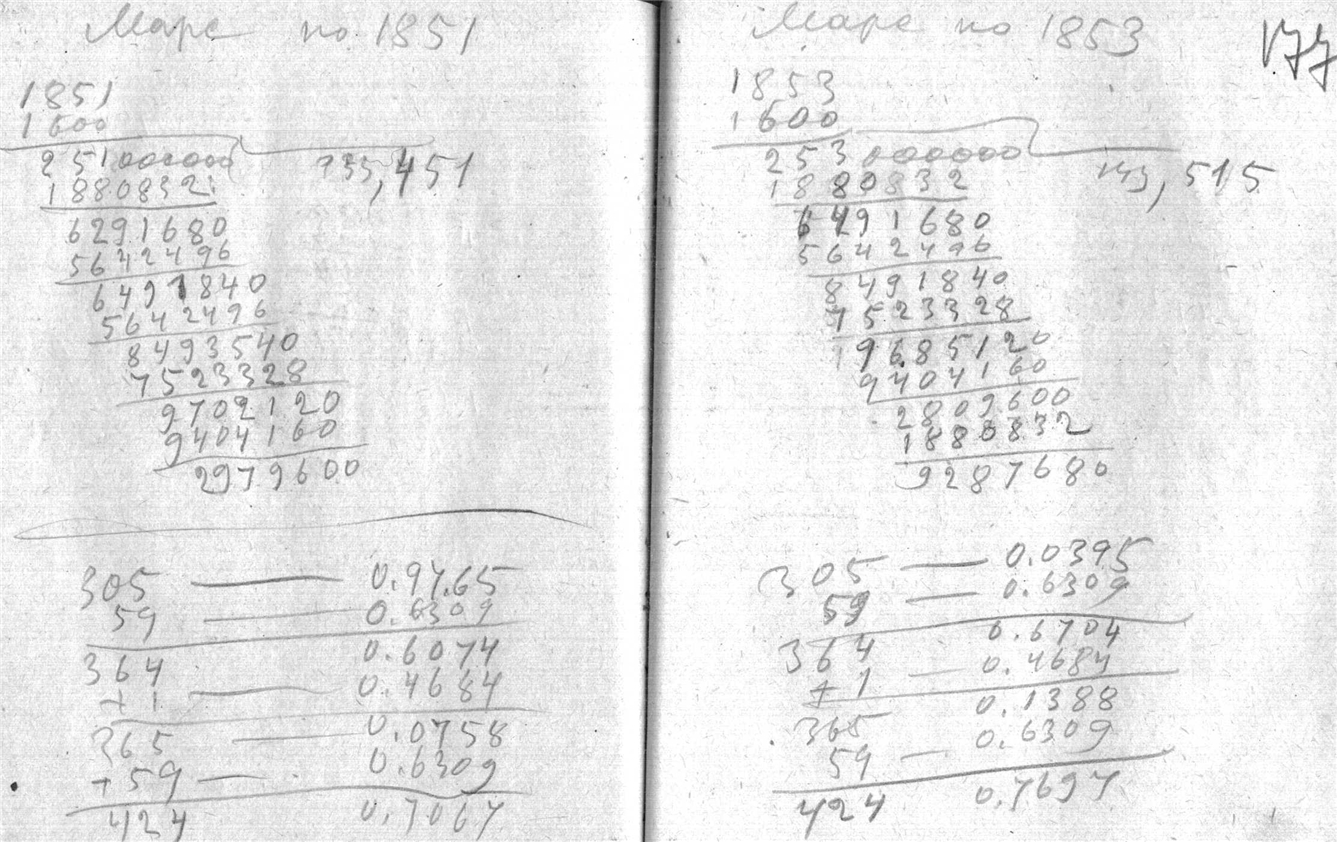 Марс по 1851
1851
1600
251000000
133,451
1880832
6291680
5642496
6491840
5642496
8493540
7523328
9702120
9404160
2979600
305 — 0.9765
59 — 0.6309
364 0.6074
+1 — 0.4684
365 — 0.0758
+59 — 0.6309
424 0.7067
Марс по 1853
177
1853
1600
253000000
133,515
1880832
6491680
5642496
8491840
7523328
19685120
9404160
2809600
1880832
9287680
305 — 0.0395
59 — 0.6309
364 0.6704
+1 — 0.4684
365 0.1388
59 — 0.6309
424 0.7697